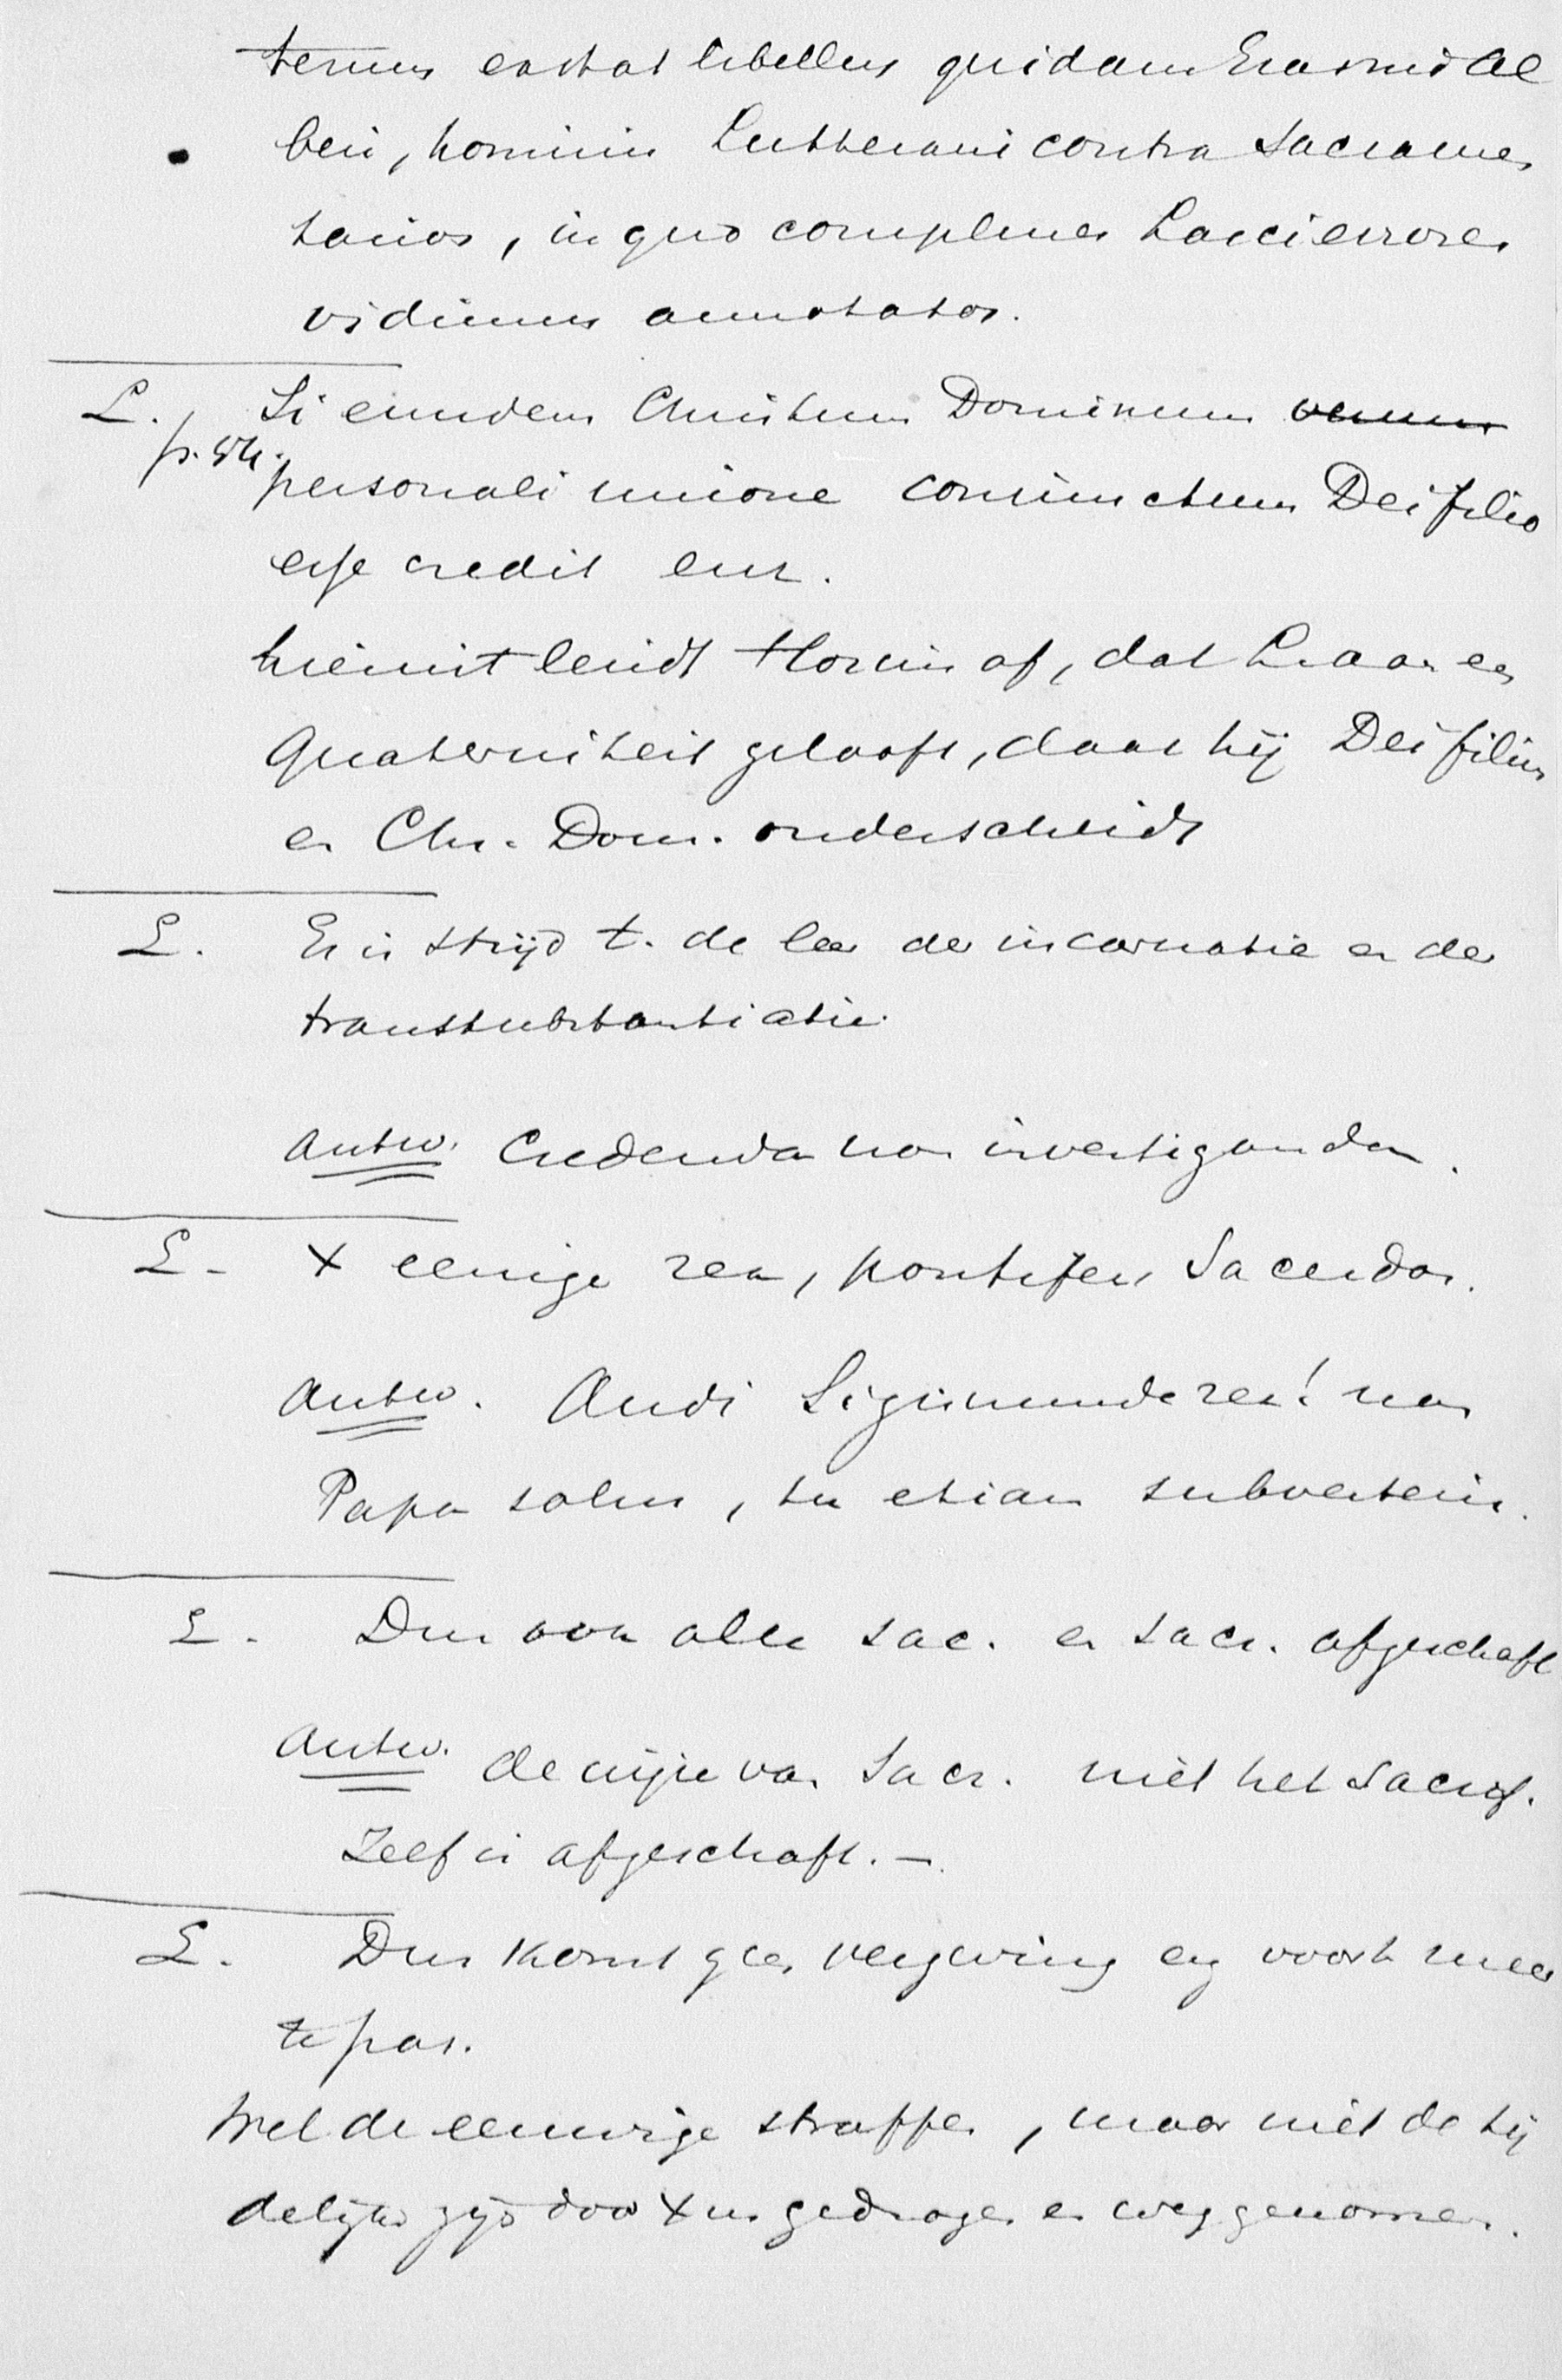 temus exstat libellus quidam Erasmi Al
beri, hominis Lutherani contra Sacramen
tarios, in quo complures Lasci errores
vidimus annotatos.
L. Si eundem Christum Dominum verum
p. 54. personali unione coniunctum Dei filio
esse credit enz.
hieruit leidt Hosius af, dat Lasco een
Quaterniteit gelooft, daar hij Dei filius
en Chr. Dom. onderscheidt
L. Er is strijd t. de leer der incarnatie en der
transsubstantiatie.
Antw. Credenda non investiganda.
L. X eenige rex, pontifex Sacerdos.
Antw. Audi Sigismunde rex! non
Papa solus, tu etiam subverteris.
L. Dus ook alle sac. en sacr. afgeschaft
Antw. de wijze van Sacr. niet het Sacrif.
Zelf is afgeschaft. –
L. Dus komt geen vergeving enz voorts meer
te pas.
Wel de eeuwige straffen, maar niet de tij
delijke zijn door Xus gedragen en weggenomen.